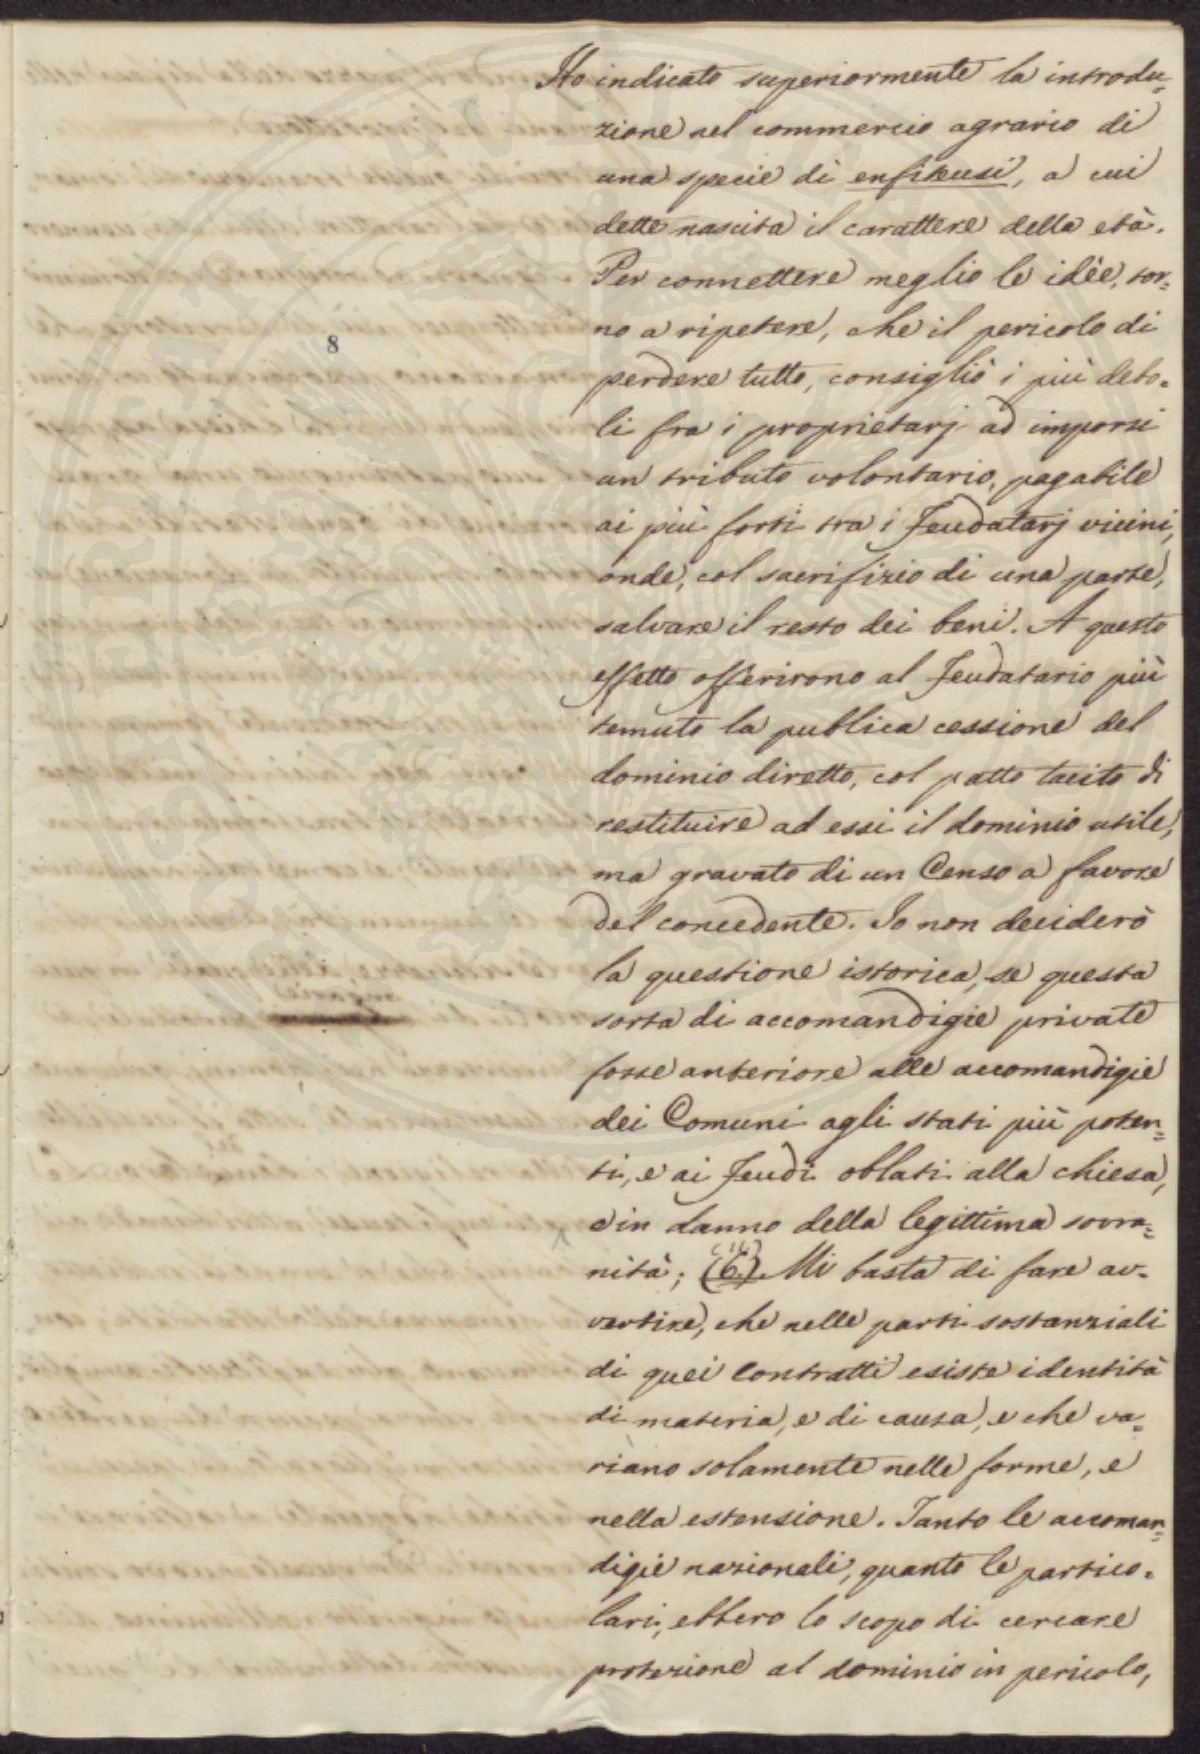 Ho indicato superiormente la introdu=
zione nel commercio agrario di
una specie di enfiteusi, a cui
dette nascita il carattere della età.
Per connettere meglio le idèe, tor=
no a ripetere, che il pericolo di
8
perdere tutto, consigliò i più debo=
li fra i proprietarj ad imporsi
un tributo volontario, pagabile
ai più forti tra i Feudatarj vicini,
onde, col sacrifizio di una parte,
salvare il resto dei beni. A questo
effetto offerirono al Feudatario più
temuto la publica cessione del
dominio diretto, col patto tacito di
restituire ad essi il dominio utile,
ma gravato di un Censo a favore
del concedente. Io non deciderò
la questione istorica, se questa
sorta di accomandigie private
fosse anteriore alle accomandigie
dei Comuni agli stati più poten=
ti, e ai Feudi oblati alla chiesa,
in danno della legittima sovra=
nità; (6) Mi basta di fare av=
vertire, che nelle parti sostanziali
di quei contratti esiste identità
di materia, e di causa, e che va=
riano solamente nelle forme, e
nella estensione. Tanto le accoman=
digie nazionali, quanto le partico=
lari, ebbero lo scopo di cercare
protezione al dominio in pericolo,